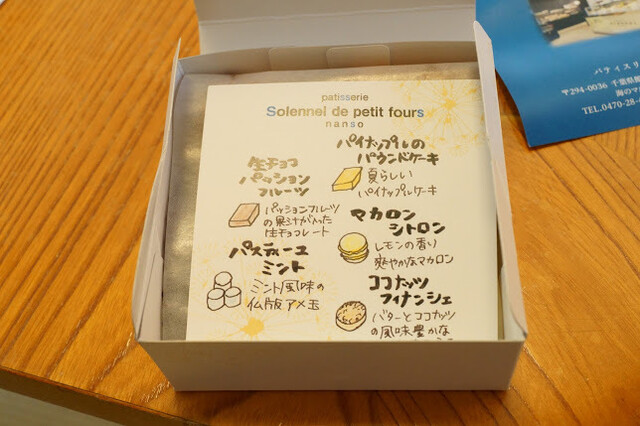 patisserie
Solennel de petit fours
nanso
生チョコ
パッション
フルーツ
パッションフルーツ
の果汁が入った
生チョコレート
パスティーユ
ミント
ミント風味の
仏版アメ玉
パイナップルの
パウンドケーキ
夏らしい
パイナップルケーキ
マカロン
シトロン
レモンの香り
爽やかなマカロン
ココナッツ
フィナンシェ
バターとココナッツ
の風味豊かな
パティスリ
〒294-0036 千葉県館
海のマ
TEL.0470-28-